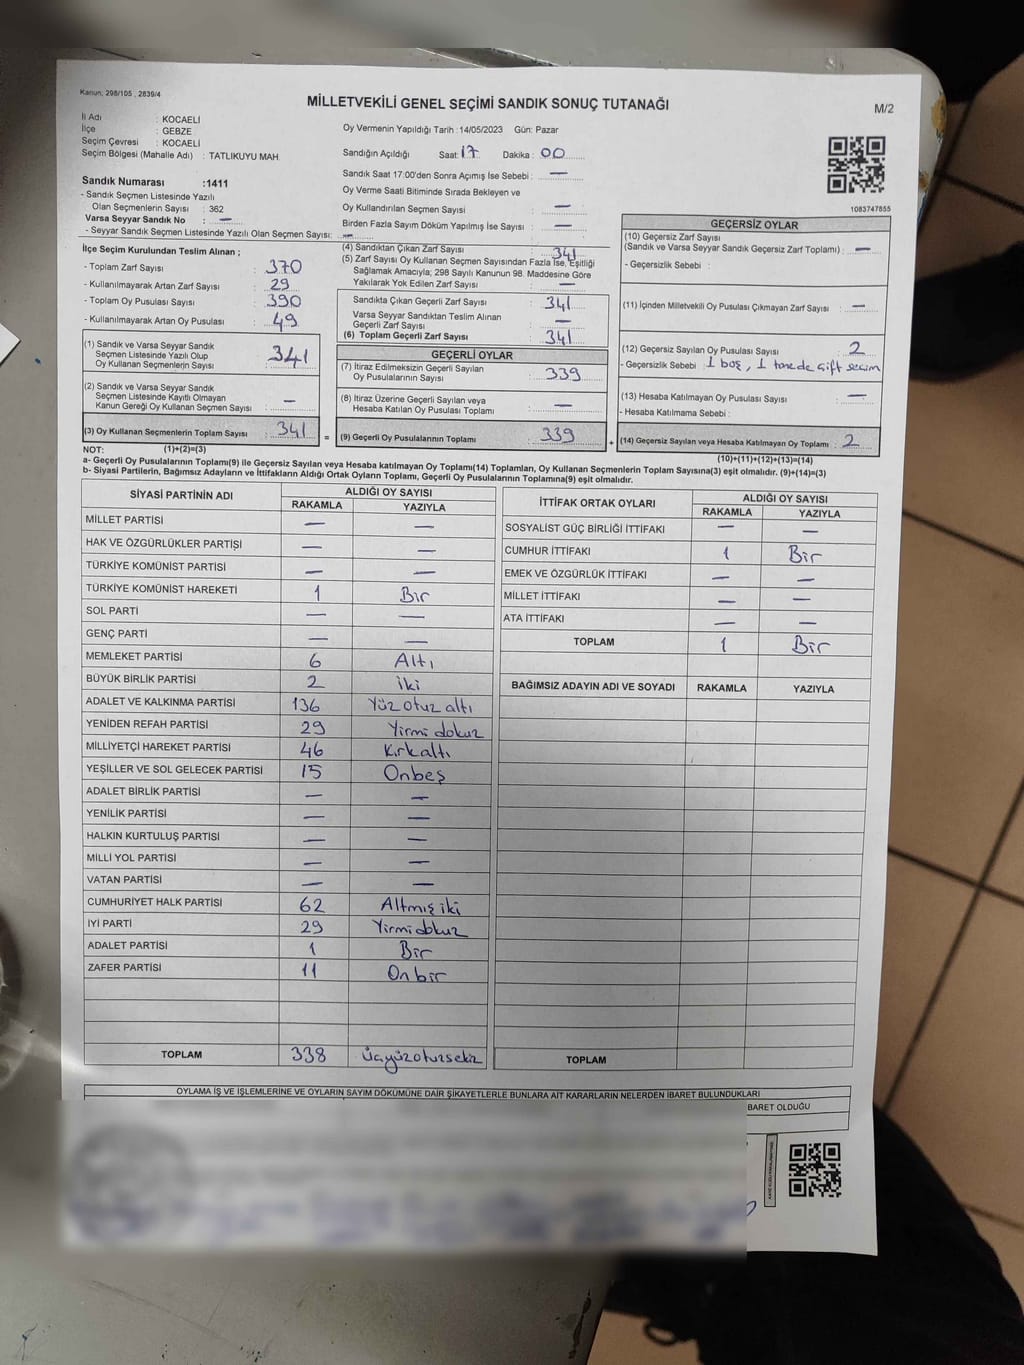 Kanun: 298/105 , 2839/4
MİLLETVEKİLİ GENEL SEÇİMİ SANDIK SONUÇ TUTANAĞI
M/2
İl Adı : KOCAELİ
İlçe : GEBZE
Seçim Çevresi : KOCAELİ
Seçim Bölgesi (Mahalle Adı) : TATLIKUYU MAH.
Oy Vermenin Yapıldığı Tarih : 14/05/2023 Gün: Pazar
Sandığın Açıldığı Saat: 17 Dakika : 00
Sandık Saat 17:00'den Sonra Açımış İse Sebebi : —
Oy Verme Saati Bitiminde Sırada Bekleyen ve
Oy Kullandırılan Seçmen Sayısı : —
Birden Fazla Sayım Döküm Yapılmış İse Sayısı : —
1083747855
Sandık Numarası :1411
- Sandık Seçmen Listesinde Yazılı
Olan Seçmenlerin Sayısı : 362
Varsa Seyyar Sandık No : —
- Seyyar Sandık Seçmen Listesinde Yazılı Olan Seçmen Sayısı: —
İlçe Seçim Kurulundan Teslim Alınan ;
- Toplam Zarf Sayısı : 370
- Kullanılmayarak Artan Zarf Sayısı : 29
- Toplam Oy Pusulası Sayısı : 390
- Kullanılmayarak Artan Oy Pusulası : 49
(1) Sandık ve Varsa Seyyar Sandık
Seçmen Listesinde Yazılı Olup
Oy Kullanan Seçmenlerin Sayısı : 341
(2) Sandık ve Varsa Seyyar Sandık
Seçmen Listesinde Kayıtlı Olmayan
Kanun Gereği Oy Kullanan Seçmen Sayısı : —
(3) Oy Kullanan Seçmenlerin Toplam Sayısı : 341
(4) Sandıktan Çıkan Zarf Sayısı : 341
(5) Zarf Sayısı Oy Kullanan Seçmen Sayısından Fazla İse, Eşitliği
Sağlamak Amacıyla; 298 Sayılı Kanunun 98. Maddesine Göre
Yakılarak Yok Edilen Zarf Sayısı : —
Sandıkta Çıkan Geçerli Zarf Sayısı : 341
Varsa Seyyar Sandıktan Teslim Alınan
Geçerli Zarf Sayısı : —
(6) Toplam Geçerli Zarf Sayısı : 341
GEÇERLİ OYLAR
(7) İtiraz Edilmeksizin Geçerli Sayılan
Oy Pusulalarının Sayısı : 339
(8) İtiraz Üzerine Geçerli Sayılan veya
Hesaba Katılan Oy Pusulası Toplamı : —
= (9) Geçerli Oy Pusulalarının Toplamı : 339 +
GEÇERSİZ OYLAR
(10) Geçersiz Zarf Sayısı
(Sandık ve Varsa Seyyar Sandık Geçersiz Zarf Toplamı) : —
- Geçersizlik Sebebi :
(11) İçinden Milletvekili Oy Pusulası Çıkmayan Zarf Sayısı : —
(12) Geçersiz Sayılan Oy Pusulası Sayısı : 2
- Geçersizlik Sebebi : 1 boş, 1 tanede çift seçim
(13) Hesaba Katılmayan Oy Pusulası Sayısı : —
- Hesaba Katılmama Sebebi :
(14) Geçersiz Sayılan veya Hesaba Katılmayan Oy Toplamı : 2
NOT: (1)+(2)=(3)
(10)+(11)+(12)+(13)=(14)
a- Geçerli Oy Pusulalarının Toplamı(9) ile Geçersiz Sayılan veya Hesaba katılmayan Oy Toplamı(14) Toplamları, Oy Kullanan Seçmenlerin Toplam Sayısına(3) eşit olmalıdır. (9)+(14)=(3)
b- Siyasi Partilerin, Bağımsız Adayların ve İttifakların Aldığı Ortak Oyların Toplamı, Geçerli Oy Pusulalarının Toplamına(9) eşit olmalıdır.
SİYASİ PARTİNİN ADI ALDIĞI OY SAYISI
RAKAMLA YAZIYLA
MİLLET PARTİSİ — —
HAK VE ÖZGÜRLÜKLER PARTİSİ — —
TÜRKİYE KOMÜNİST PARTİSİ — —
TÜRKİYE KOMÜNİST HAREKETİ 1 Bir
SOL PARTİ — —
GENÇ PARTİ — —
MEMLEKET PARTİSİ 6 Altı
BÜYÜK BİRLİK PARTİSİ 2 iki
ADALET VE KALKINMA PARTİSİ 136 Yüzotuzaltı
YENİDEN REFAH PARTİSİ 29 Yirmidokuz
MİLLİYETÇİ HAREKET PARTİSİ 46 Kırkaltı
YEŞİLLER VE SOL GELECEK PARTİSİ 15 Onbeş
ADALET BİRLİK PARTİSİ — —
YENİLİK PARTİSİ — —
HALKIN KURTULUŞ PARTİSİ — —
MİLLİ YOL PARTİSİ — —
VATAN PARTİSİ — —
CUMHURİYET HALK PARTİSİ 62 Altmışiki
İYİ PARTİ 29 Yirmidokuz
ADALET PARTİSİ 1 Bir
ZAFER PARTİSİ 11 Onbir
TOPLAM 338 üçyüzotuzsekiz
İTTİFAK ORTAK OYLARI ALDIĞI OY SAYISI
RAKAMLA YAZIYLA
SOSYALİST GÜÇ BİRLİĞİ İTTİFAKI — —
CUMHUR İTTİFAKI 1 Bir
EMEK VE ÖZGÜRLÜK İTTİFAKI — —
MİLLET İTTİFAKI — —
ATA İTTİFAKI — —
TOPLAM 1 Bir
BAĞIMSIZ ADAYIN ADI VE SOYADI RAKAMLA YAZIYLA
TOPLAM
OYLAMA İŞ VE İŞLEMLERİNE VE OYLARIN SAYIM DÖKÜMÜNE DAİR ŞİKAYETLERLE BUNLARA AİT KARARLARIN NELERDEN İBARET BULUNDUKLARI
BARET OLDUĞU